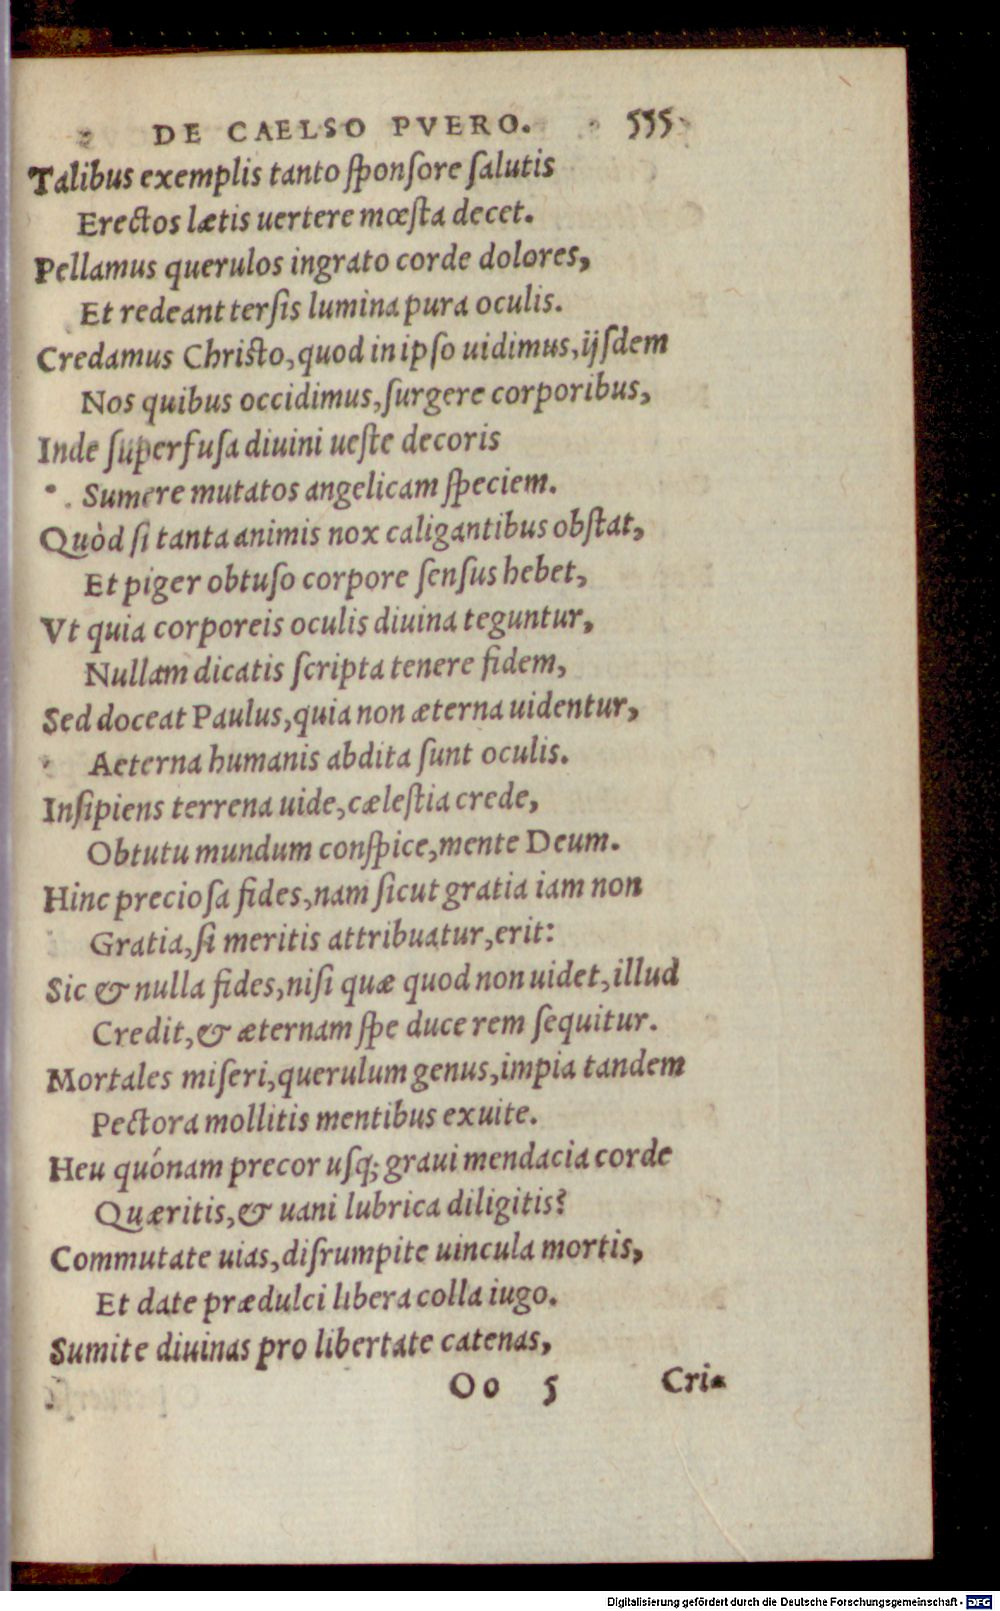 DE CAELSO PVERO. 555
Talibus exemplis tanto ſponſore ſalutis
Erectos lætis uertere mœſta decet.
Pellamus querulos ingrato corde dolores,
Et redeant terſis lumina pura oculis.
Credamus Chriſto, quod in ipſo uidimus, ijſdem
Nos quibus occidimus, ſurgere corporibus,
Inde ſuperfuſa diuini ueſte decoris
Sumere mutatos angelicam ſpeciem.
Quòd ſi tanta animis nox caligantibus obſtat,
Et piger obtuſo corpore ſenſus hebet,
Vt quia corporeis oculis diuina teguntur,
Nullam dicatis ſcripta tenere fidem,
Sed doceat Paulus, quia non æterna uidentur,
Aeterna humanis abdita ſunt oculis.
Inſipiens terrena uide, cæleſtia crede,
Obtutu mundum conſpice, mente Deum.
Hinc precioſa fides, nam ſicut gratia iam non
Gratia, ſi meritis attribuatur, erit:
Sic & nulla fides, niſi quæ quod non uidet, illud
Credit, & æternam ſpe duce rem ſequitur.
Mortales miſeri, querulum genus, impia tandem
Pectora mollitis mentibus exuite.
Heu quónam precor uſq; graui mendacia corde
Quæritis, & uani lubrica diligitis?
Commutate uias, diſrumpite uincula mortis,
Et date prædulci libera colla iugo.
Sumite diuinas pro libertate catenas,
Oo 5 Cri-
Digitalisierung gefördert durch die Deutsche Forschungsgemeinschaft - DFG